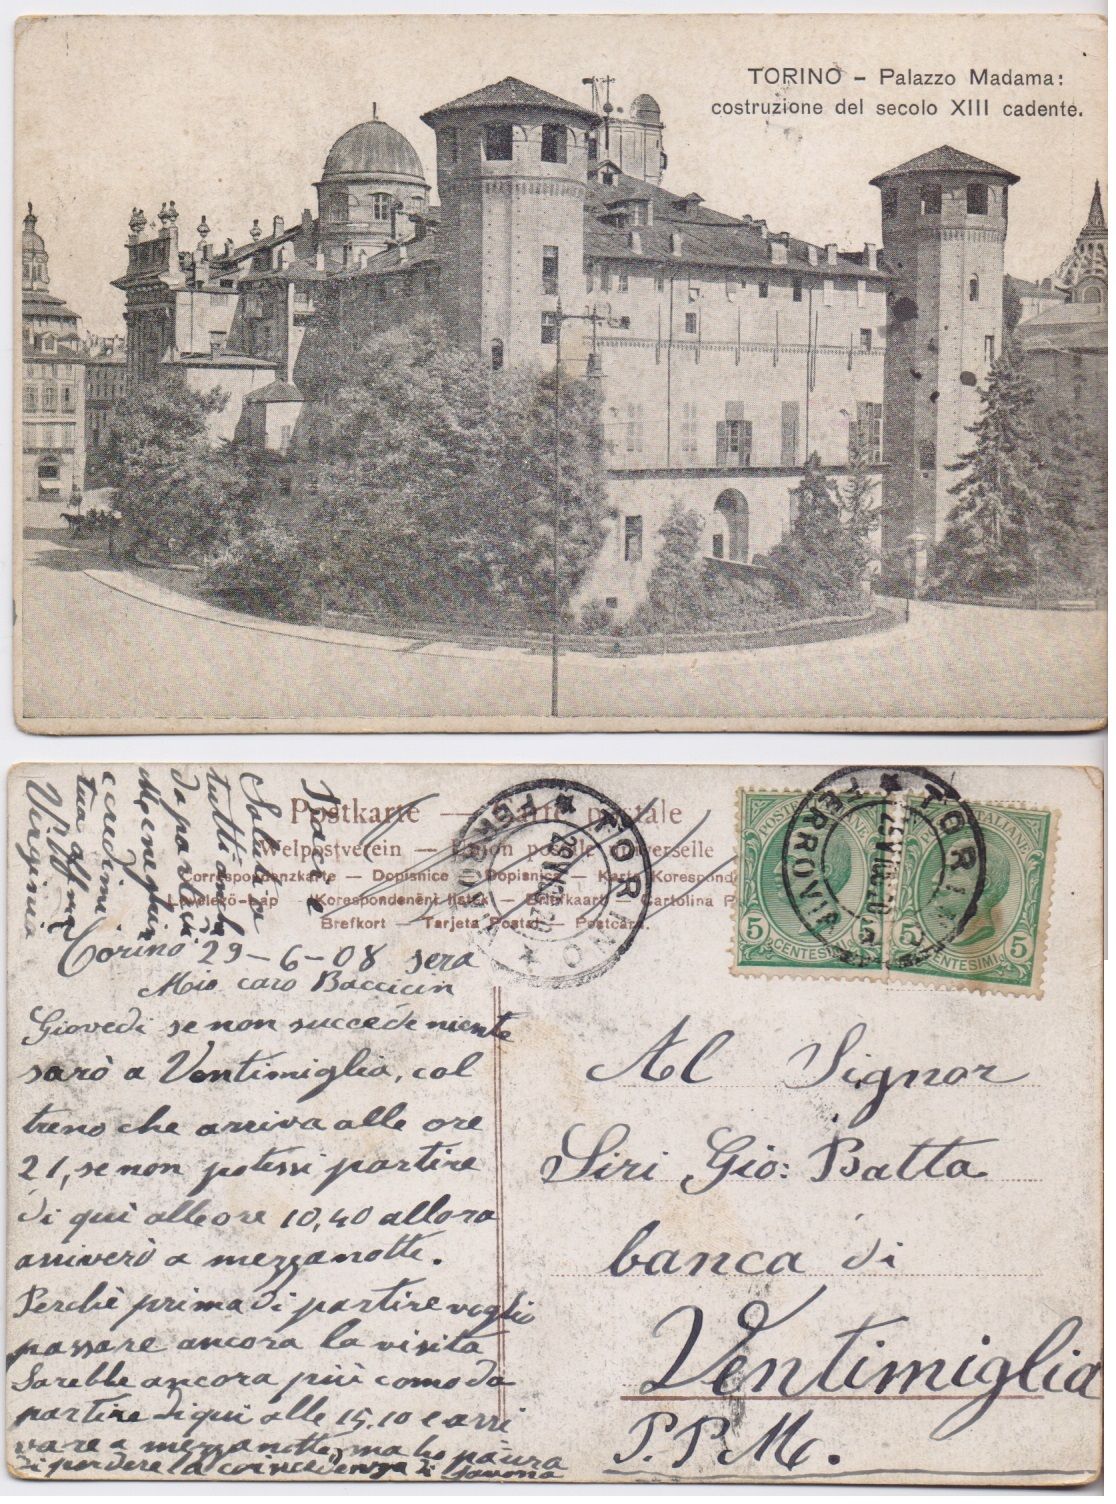 TORINO – Palazzo Madama:
costruzione del secolo XIII cadente.
Postkarte — Carte postale
Welpostverein — Union postale universelle
Correspondenzkarte — Dopisnice — Dopisnica — Karta Korespond
Levelező-Lap — Korespondenční lístek — Briefkaart — Cartolina P
Brefkort — Tarjeta Postal — Postcard.
POSTE ITALIANE
5 CENTESIMI 5
POSTE ITALIANE
5 CENTESIMI 5
TORINO
TORINO
FERROVIA
Torino 29-6-08 sera
Mio caro Baccicin
Giovedi se non succede niente
sarò a Ventimiglia, col
treno che arriva alle ore
21, se non potessi partire
di qui alle ore 10,40 allora
arriverò a mezzanotte.
Perchè prima di partire voglio
passare ancora la visita
Sarebbe ancora più comodo
partire di qui alle 15.10 e arri
vare a mezzanotte, ma ho paura
di perdere la coincidenza di Savona
Baci e
Saluta
tutti
da parte
e credimi
tua
Virginia
Al Signor
Siri Gio: Batta
banca di
Ventimiglia
P.P.M.